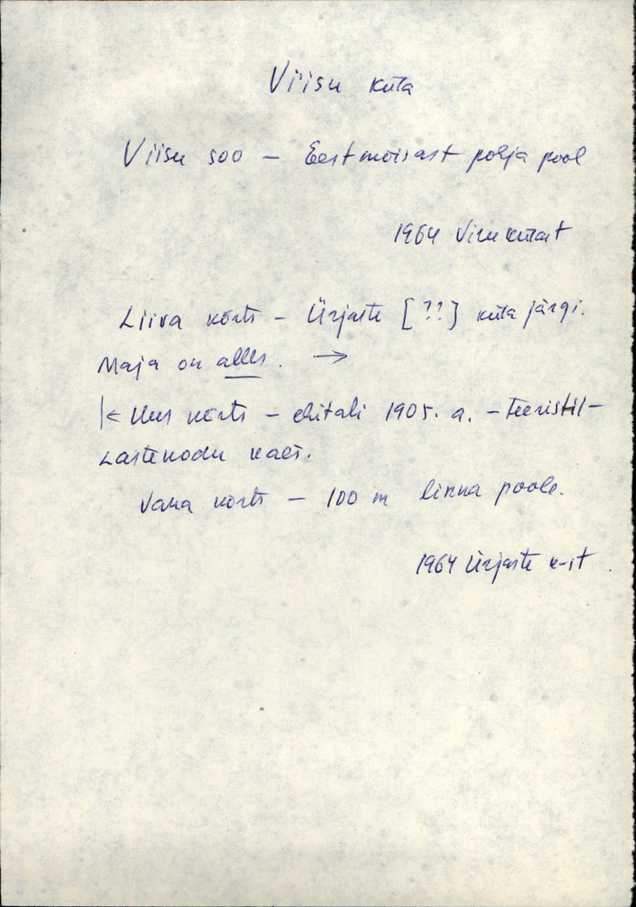 Viisu küla
Viisu soo – Eestmõisast põhja pool
1964 Viru külast
Liiva kõrts – Ürjaste [??] küla järgi.
Maja on alles. →
|← Uus kõrts – ehitati 1905. a. – Teeristil –
Lastekodu
Vana kõrts – 100 m linna poole.
1964 Ürjaste k-st